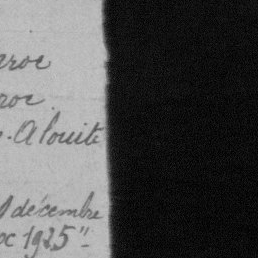 aroc
aroc.
. Alouite
1 décembre
oc 1925"-